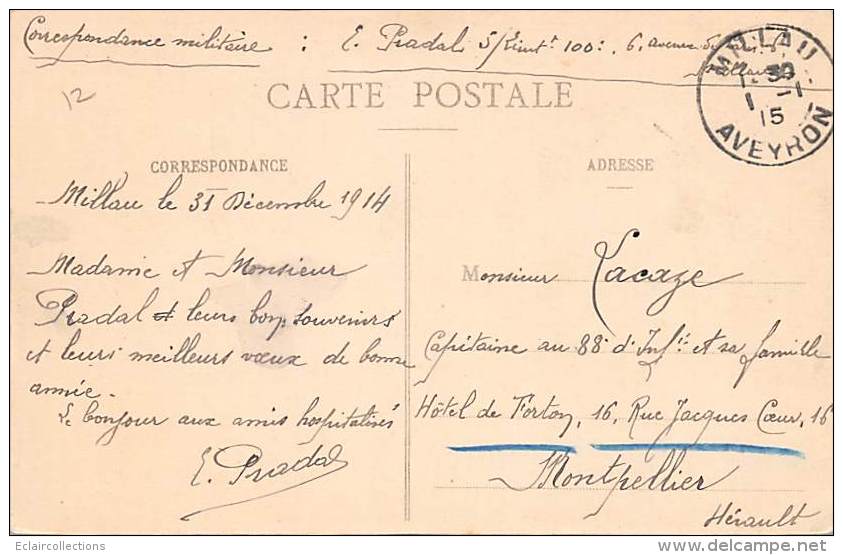 Correspondance militaire : E. Pradal S/Lieut 100e, 6, avenue
Millau
12
CARTE POSTALE
MILLAU
15
AVEYRON
CORRESPONDANCE
ADRESSE
Millau le 31 Décembre 1914
Madame et Monsieur
Pradal et leurs bons souvenirs
et leurs meilleurs vœux de bonne
année.
Le bonjour aux amis hospitalisés
E. Pradal
Monsieur Lacaze
Capitaine au 88e d'Infie et sa famille
Hôtel de Forton, 16, Rue Jacques Cœur, 16
Montpellier
Hérault
Eclaircollections
www.delcampe.net